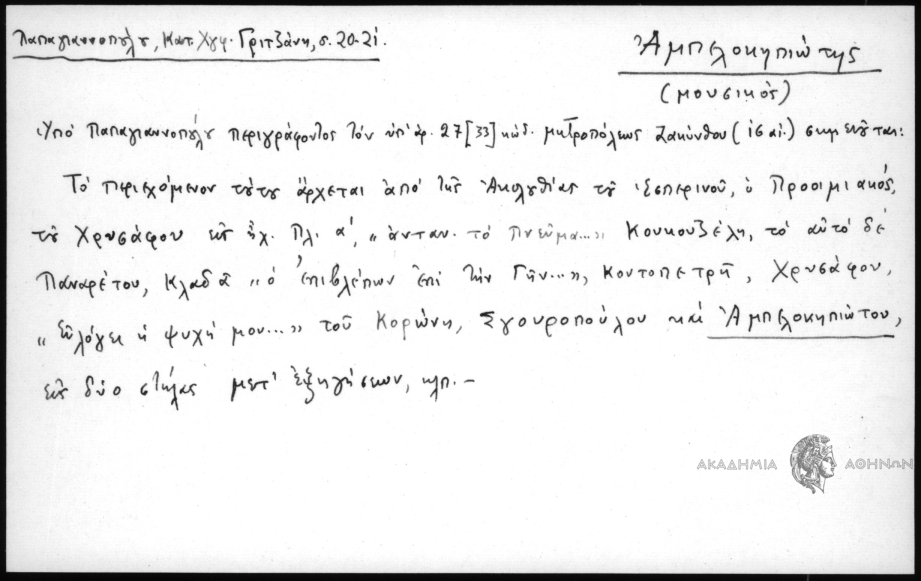 Παπαγιαννοπούλου, Κατ. Χγφ. Γριτζάνη, σ. 20-21.
Ἀμπελοκηπιώτης
(μουσικός)
Ὑπό Παπαγιαννοπούλου περιγράφοντος τόν ὑπ' ἀρ. 27[33] κώδ. μητροπόλεως Ζακύνθου (ις αἰ.) σημειοῦται:
Τό περιεχόμενον τούτου ἄρχεται ἀπό τῆς Ἀκολουθίας τοῦ Ἑσπερινοῦ, ὁ Προοιμιακός,
τοῦ Χρυσάφου εἰς ἦχ. Πλ. α', „ἀνταν. τό πνεῦμα..." Κουκουζέλη, τό αὐτό δέ
Παναρέτου, Κλαδᾶ „ὁ ἐπιβλέπων ἐπί τήν Γῆν...", Κοντοπετρῆ, Χρυσάφου,
„Εὐλόγει ἡ ψυχή μου..." τοῦ Κορώνη, Σγουροπούλου καί Ἀμπελοκηπιώτου,
εἰς δύο στήλας μετ' ἐξηγήσεων, κλπ. –
ΑΚΑΔΗΜΙΑ ΑΘΗΝΩΝ